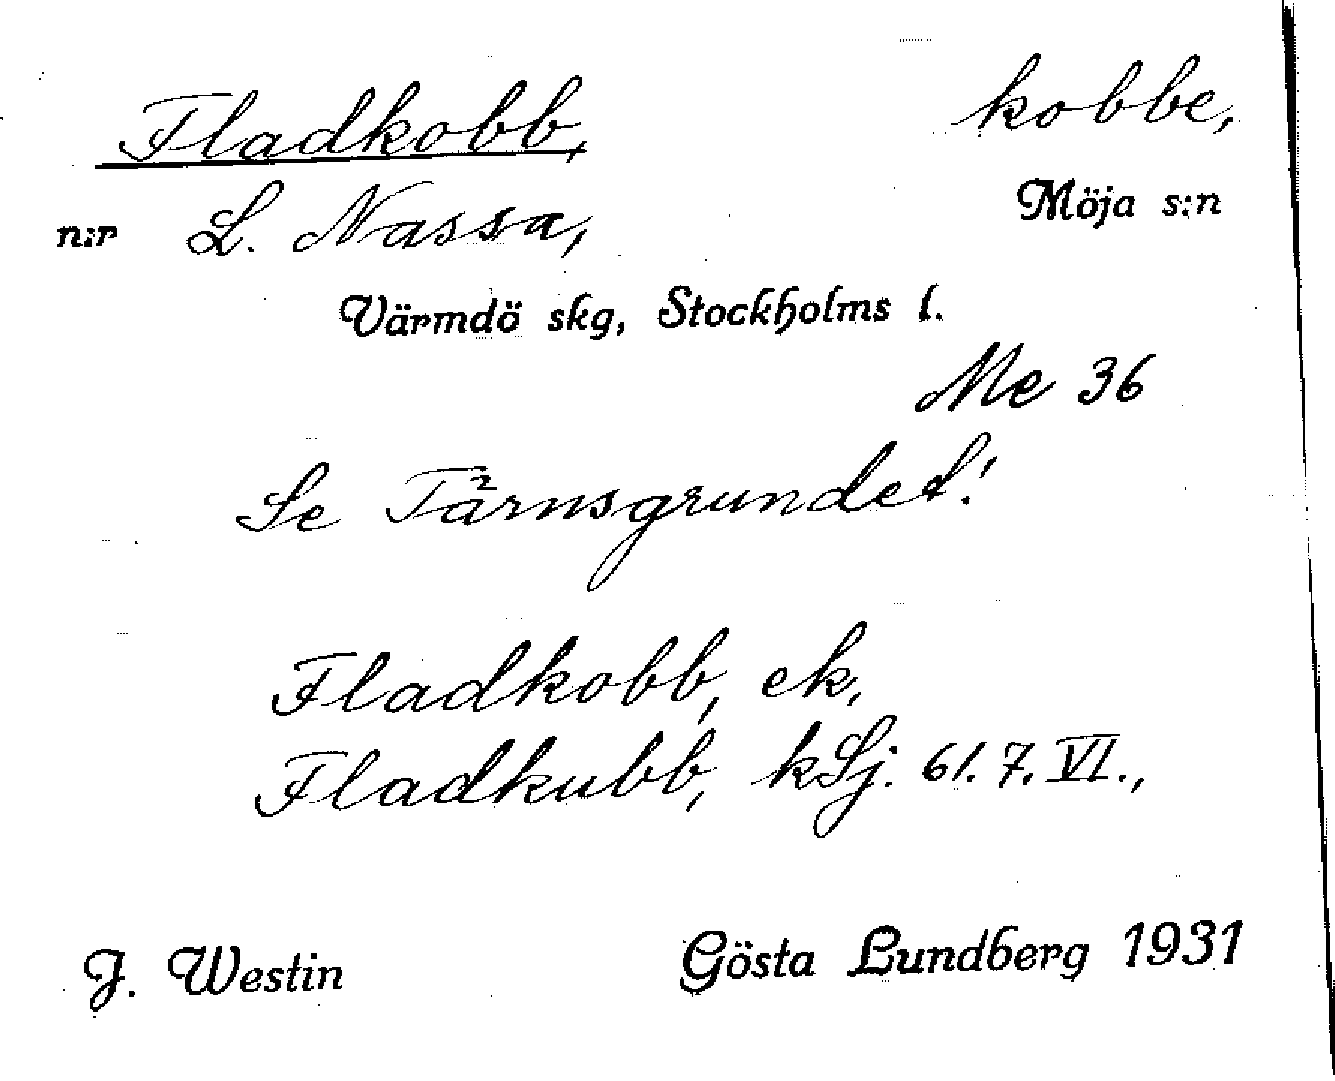 Fladkobb, kobbe,
n:r L. Nassa, Möja s:n
Värmdö skg, Stockholms l.
Me 36
Se Tärnsgrundet!
Fladkobb, ek,
Fladkubb, kSj. 61. 7. VI.,
J. Westin Gösta Lundberg 1931